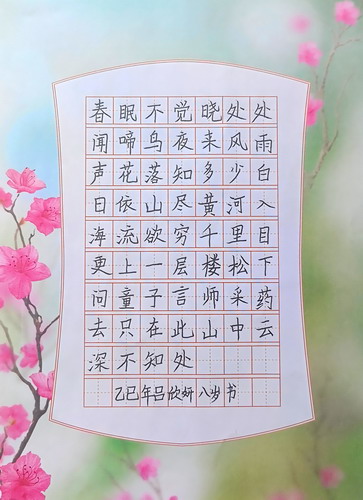 春眠不觉晓处处
闻啼鸟夜来风雨
声花落知多少白
日依山尽黄河入
海流欲穷千里目
更上一层楼松下
问童子言师采药
去只在此山中云
深不知处
乙巳年吕欣妍八岁书